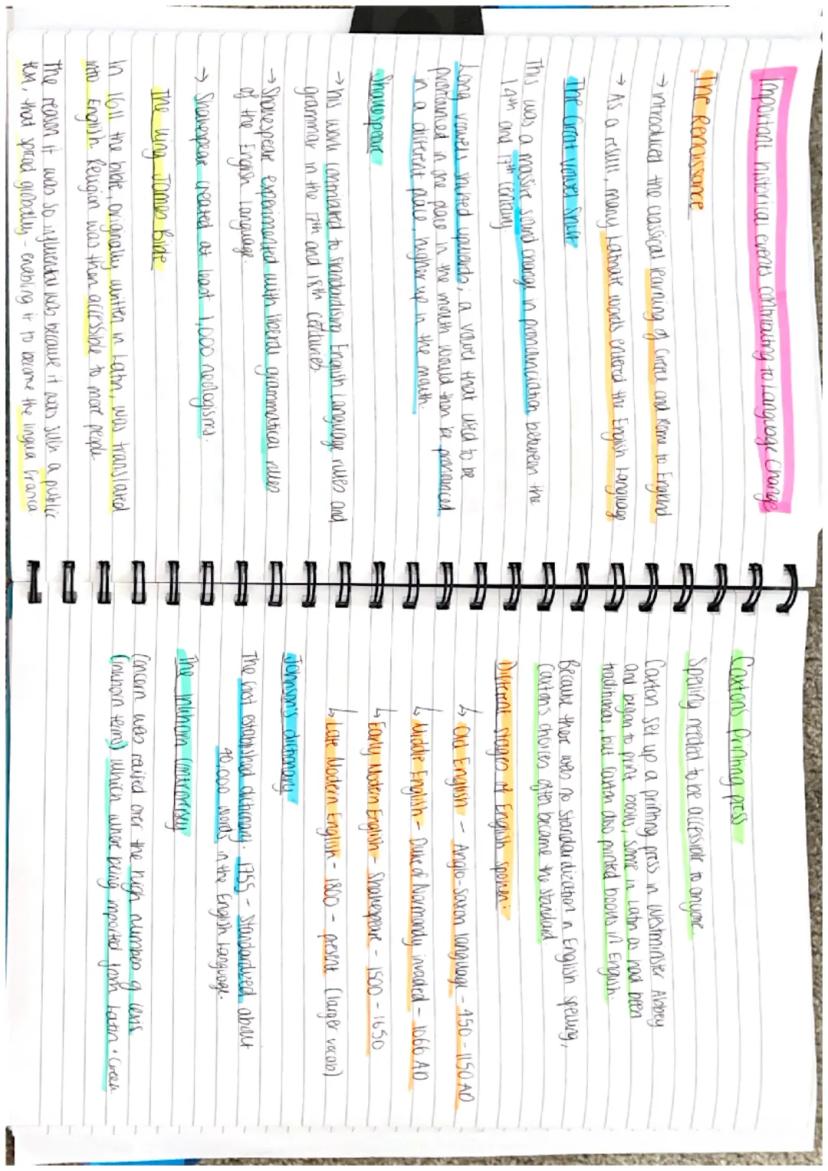 Important historical events contributing to Language Change
The Renaissance
→ introduced the classical learning of Greece and Rome to England
→ As a result, many Latinate words entered the English Language
The Great Vowel Shift
This was a massive sound change in pronunciation between the
14th and 17th century
Long vowels shifted upwards; a vowel that used to be
pronounced in one place in the mouth would then be pronounced
in a different place, higher up in the mouth.
Shakespeare
→ his work contributed to standardising English Language rules and
grammar in the 17th and 18th centuries
→ Shakespeare experimented with liberal grammatical rules
of the English Language.
→ Shakespeare created at least 1,000 neologisms.
The King James Bible
In 1611 the bible, originally written in Latin, was translated
into English. Religion was then accessible to more people.
The reason it was so influential was because it was such a public
text, that spread globally - enabling it to become the lingua franca
Caxton's printing press
Spelling needed to be accessible to anyone
Caxton set up a printing press in Westminster Abbey
and began to print books, some in Latin as had been
traditional, but Caxton also printed books in English.
Because there was no standardization in English spelling,
Caxton's choices often became the standard
Different stages of English spoken:
↳ Old English - Anglo-saxon language - 450 - 1150 AD
↳ Middle English - Duke of Normandy invaded - 1066 AD
↳ Early Modern English - Shakespeare - 1500 - 1650
↳ Late Modern English - 1800 - present (larger vocab)
Johnson's dictionary
The first established dictionary: 1755 - Standardized about
40,000 words in the English Language.
The inkhorn controversy
Concern was raised over the high number of
(inkhorn terms) which where being imported from Latin + Greek